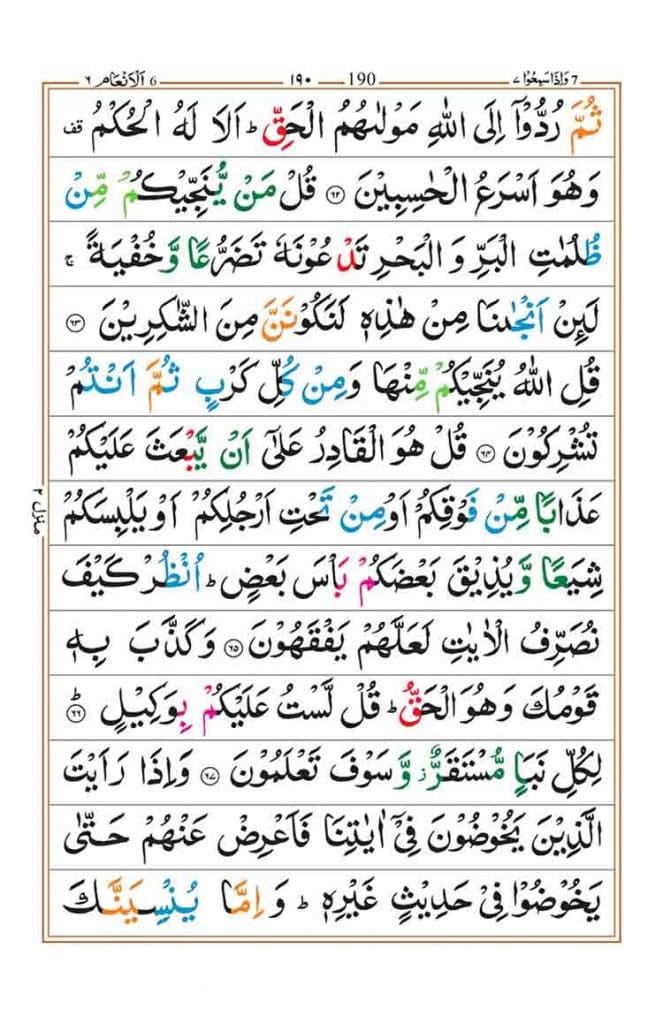 وَاِذَا سَمِعُوْا ٧ 7 190 ١٩٠ 6 اَلْاَنْعَام ٦
ثُمَّ رُدُّوْۤا اِلَى اللّٰهِ مَوْلٰىهُمُ الْحَقِّ ؕ اَلَا لَهُ الْحُكْمُ قف
وَهُوَ اَسْرَعُ الْحٰسِبِيْنَ ﴿۶۲﴾ قُلْ مَنْ يُّنَجِّيْكُمْ مِّنْ
ظُلُمٰتِ الْبَرِّ وَ الْبَحْرِ تَدْعُوْنَهٗ تَضَرُّعًا وَّ خُفْيَةً ۚ
لَىِٕنْ اَنْجٰىنَا مِنْ هٰذِهٖ لَنَكُوْنَنَّ مِنَ الشّٰكِرِيْنَ ﴿۶۳﴾
قُلِ اللّٰهُ يُنَجِّيْكُمْ مِّنْهَا وَمِنْ كُلِّ كَرْبٍ ثُمَّ اَنْتُمْ
تُشْرِكُوْنَ ﴿۶۴﴾ قُلْ هُوَ الْقَادِرُ عَلٰۤى اَنْ يَّبْعَثَ عَلَيْكُمْ
عَذَابًا مِّنْ فَوْقِكُمْ اَوْ مِنْ تَحْتِ اَرْجُلِكُمْ اَوْ يَلْبِسَكُمْ
شِيَعًا وَّ يُذِيْقَ بَعْضَكُمْ بَاْسَ بَعْضٍ ؕ اُنْظُرْ كَيْفَ
نُصَرِّفُ الْاٰيٰتِ لَعَلَّهُمْ يَفْقَهُوْنَ ﴿۶۵﴾ وَكَذَّبَ بِهٖ
قَوْمُكَ وَهُوَ الْحَقُّ ؕ قُلْ لَّسْتُ عَلَيْكُمْ بِوَكِيْلٍ ﴿۶۶﴾ ؕ
لِكُلِّ نَبَاٍ مُّسْتَقَرٌّ ؗ وَّ سَوْفَ تَعْلَمُوْنَ ﴿۶۷﴾ وَاِذَا رَاَيْتَ
الَّذِيْنَ يَخُوْضُوْنَ فِيْۤ اٰيٰتِنَا فَاَعْرِضْ عَنْهُمْ حَتّٰى
يَخُوْضُوْا فِيْ حَدِيْثٍ غَيْرِهٖ ؕ وَ اِمَّا يُنْسِيَنَّكَ
منزل ۲